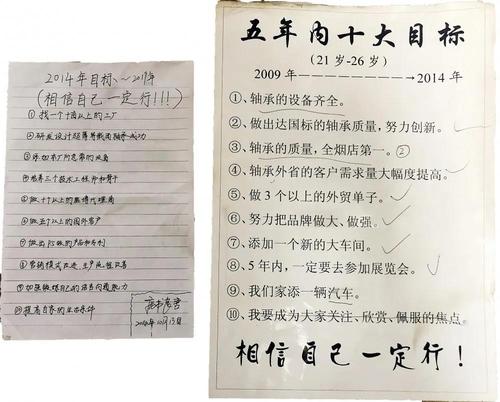 2014年目标、~2019年
(相信自己一定行!!!)
①找一个十亩以上的工厂
②研发设计超薄等截面轴承成功
③添加本厂所急需的设备
④培养三个技术工程师和骨干
⑤做十个以上的
⑥做五个以上的国外客户
⑦做出P5级的产品和专利
⑧营销模式改进、生产流程改善
⑨加强锻炼自己的语言沟通能力
⑩提高自家的生活条件
2014年10月13日
五年内十大目标
(21岁-26岁)
2009年 2014年
①、轴承的设备齐全。
②、做出达国标的轴承质量,努力创新。
③、轴承的质量,全烟店第一。②
④、轴承外省的客户需求量大幅度提高。
⑤、做3个以上的外贸单子。
⑥、努力把品牌做大、做强。
⑦、添加一个新的大车间。
⑧、5年内,一定要去参加展览会。
⑨、我们家添一辆汽车。
⑩、我要成为大家关注、欣赏、佩服的焦点。
相信自己一定行!